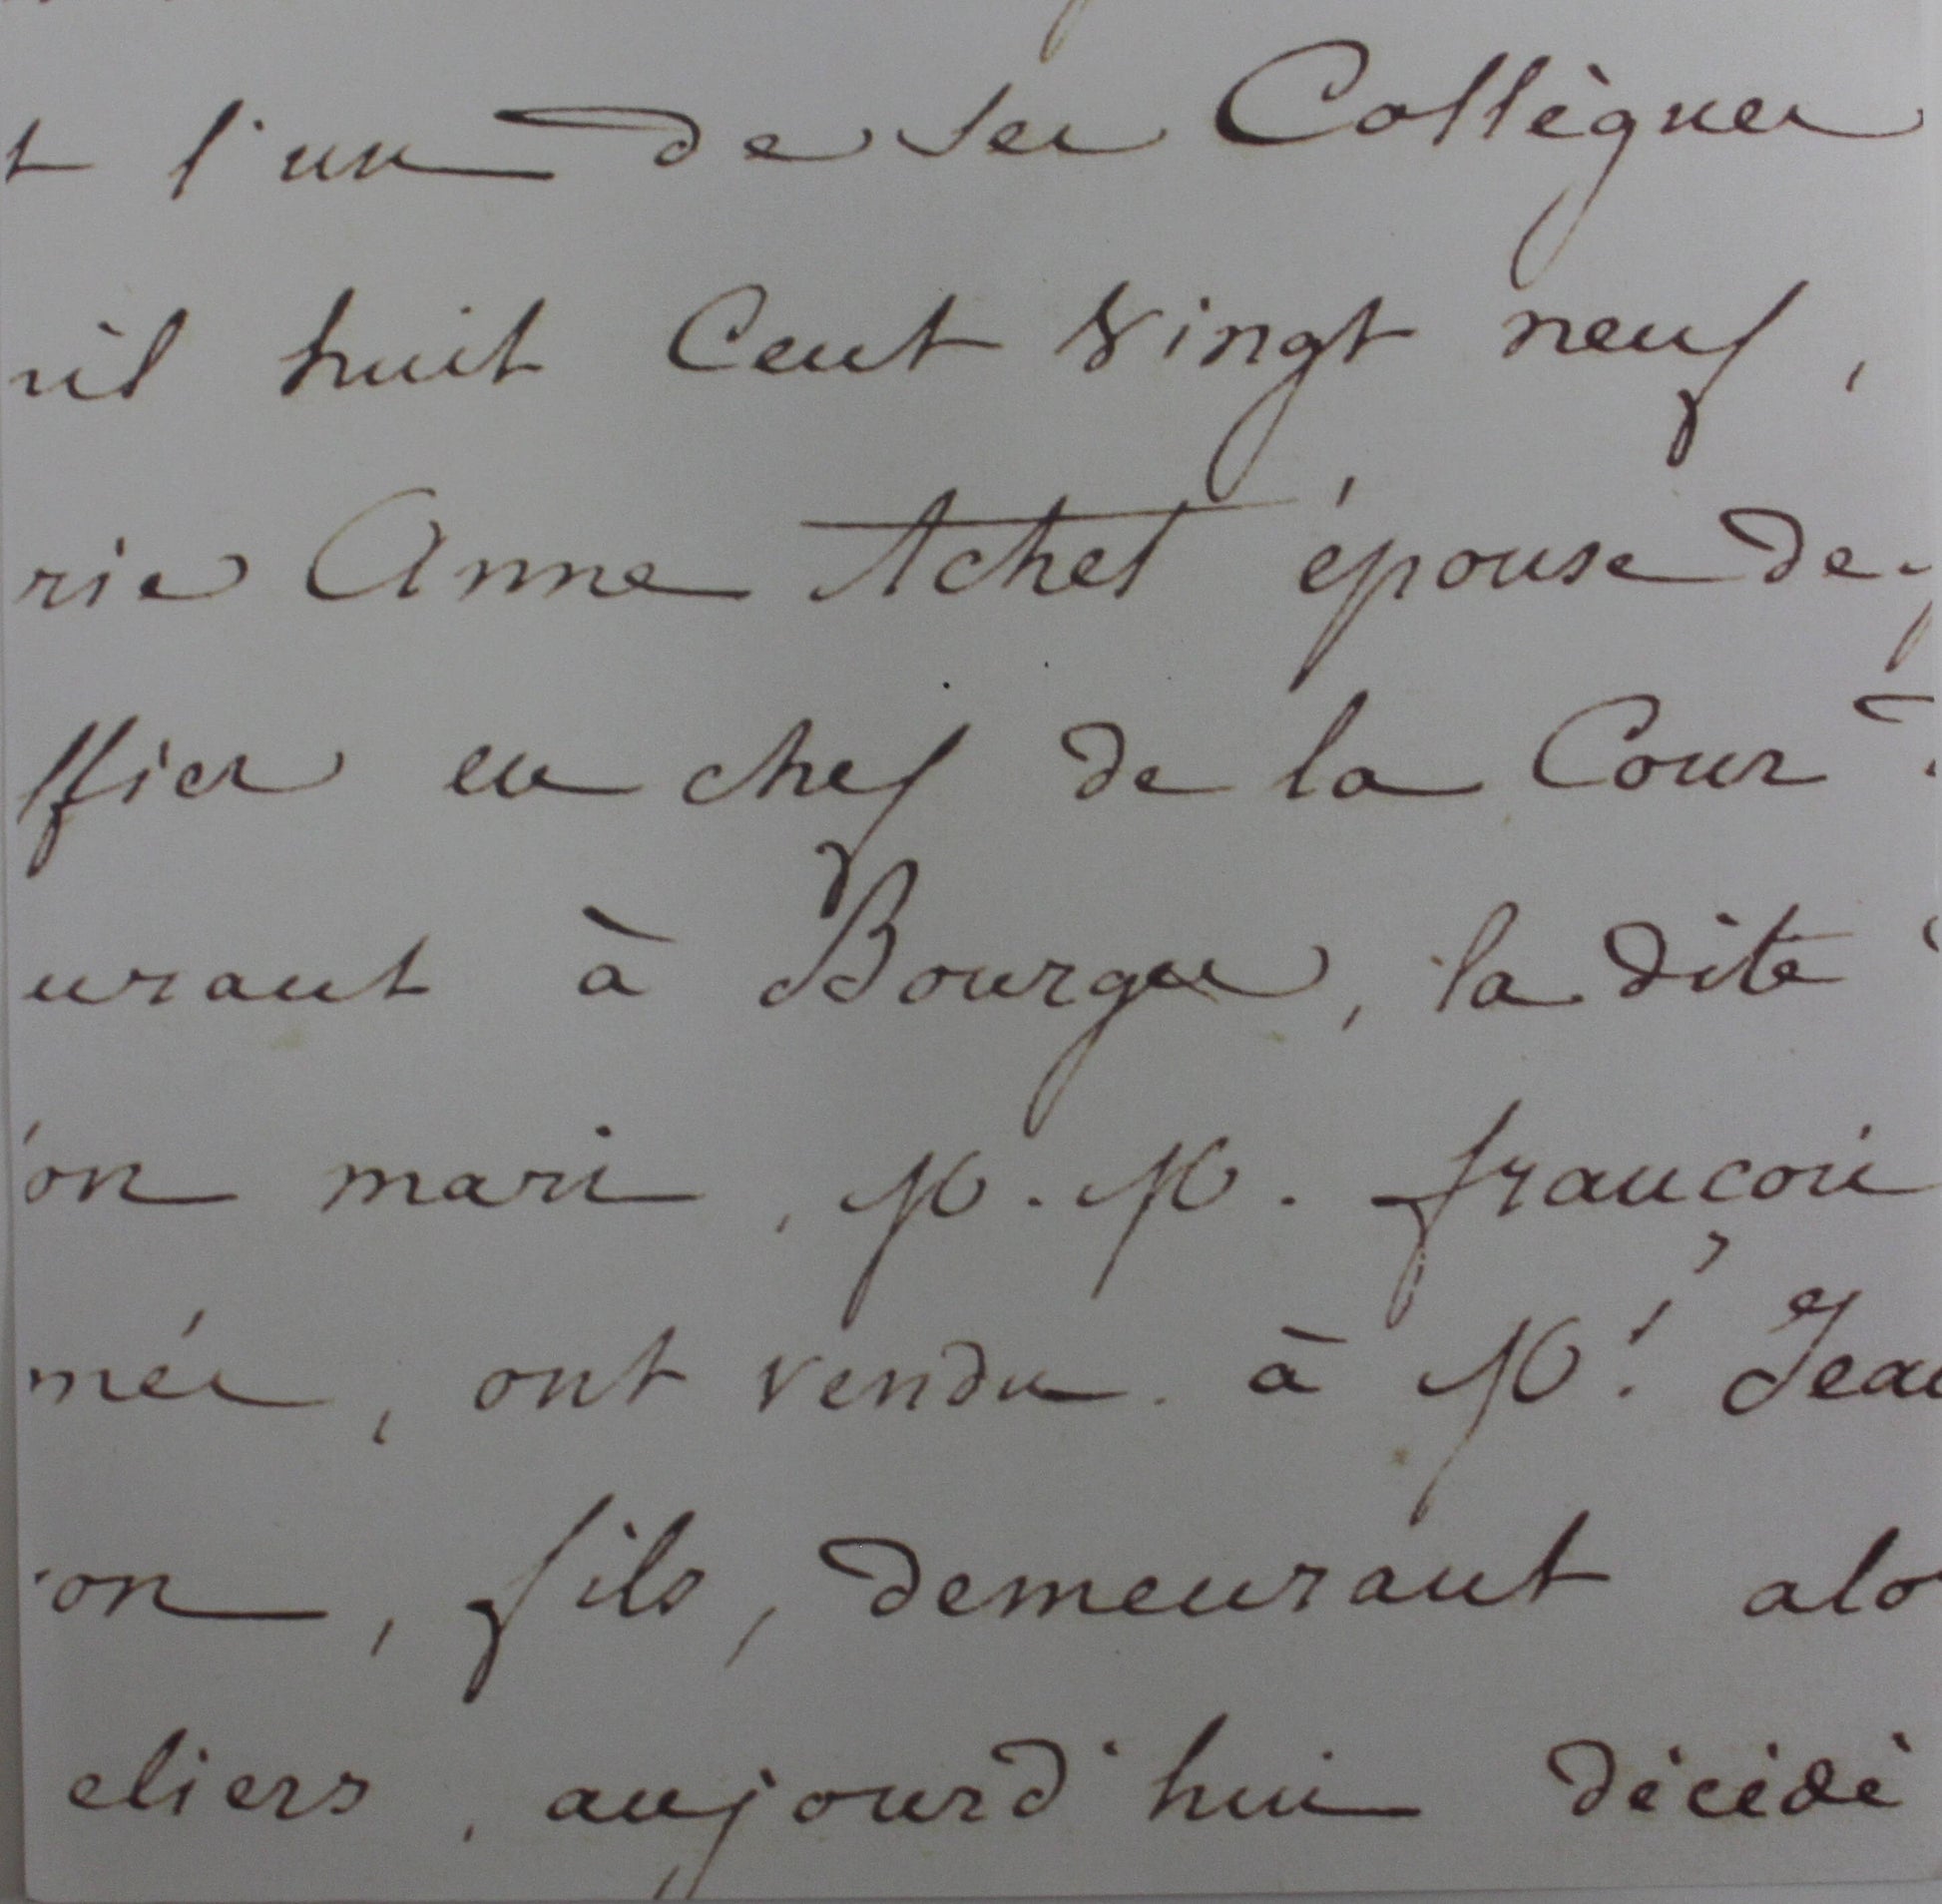 t l'un de ses Collègues
il huit Cent Vingt neuf,
rie Anne Achet épouse de
ffier en chef de la Cour
urant à Bourges, la dite
on mari, M. M. françois
més, ont vendu à Mr. Jean
on, fils, demeurant alo
eliers, aujourd'hui décédé